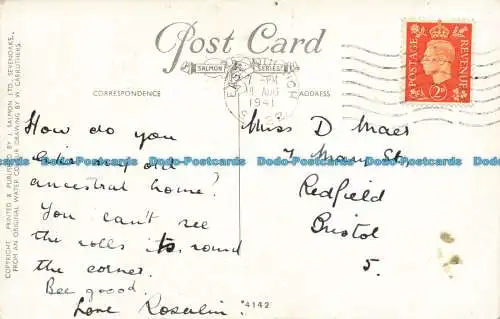 Post Card
SALMON SERIES
CORRESPONDENCE
ADDRESS
POSTAGE
REVENUE
2D
PM
AUG
1941
How do you
like my old
ancestral home?
You can't see
the rolls its round
the corner.
Bee goood.
Love Rosalin.
Miss D Maes
7 Mary St,
Redfield
Bristol
5.
4142
COPYRIGHT. PRINTED & PUBLISHED BY J. SALMON LTD. SEVENOAKS,
FROM AN ORIGINAL WATER COLOUR DRAWING BY W. CARRUTHERS.
Dodo-Postcards Dodo-Postcards Dodo-Postcards Dodo-Postcards
Dodo-Postcards Dodo-Postcards Dodo-Postcards Dodo-Postcards